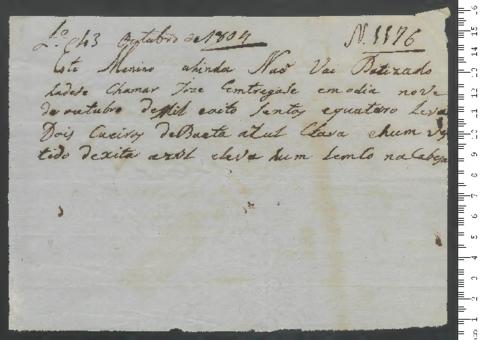 Lº 43 outubro de 1804 N. 1176
Este Menino ahinda Naõ Vai Batizado
dadese Chamar Joze Emtregase em odia nove
de outubro de Mil e oito Sentos e quatoro Leva
Dois Cueiros de Baeta azul Clara e hum ves
tido de xita azul eleva hum Lemso na Cabesa